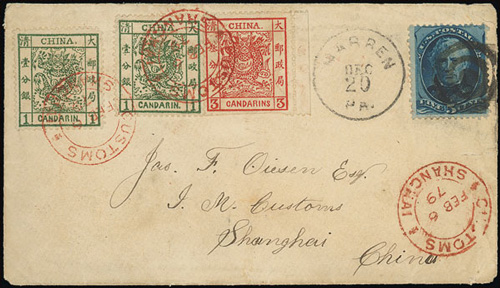 CHINA.
大清郵政局
壹分銀
1 CANDARIN. 1
CHINA.
大清郵政局
壹分銀
1 CANDARIN. 1
CHINA.
大清郵政局
叁分銀
3 CANDARINS 3
WARREN
DEC
20
PA.
U.S. POSTAGE
CUSTOMS
SHANGHAI
CUSTOMS
FEB 6
79
SHANGHAI
Jas. F. Oiesen Esq.
I. M. Customs
Shanghai
China